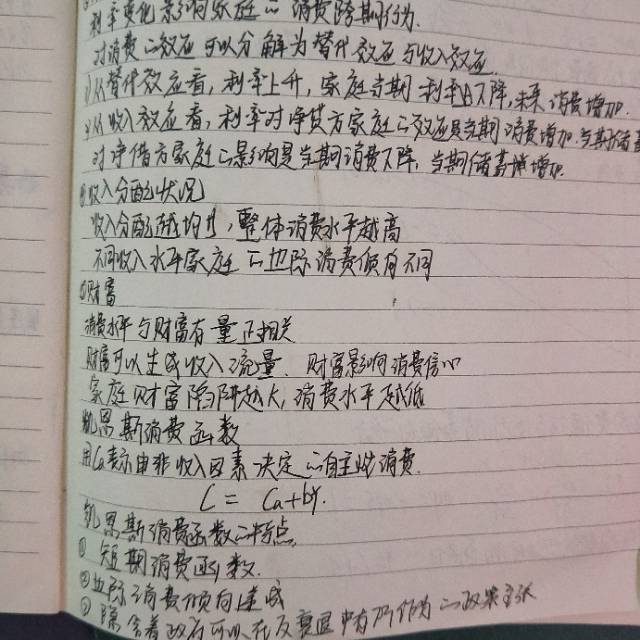 利率变化影响家庭的消费跨期行为.
对消费的效应可以分解为替代效应与收入效应.
从替代效应看,利率上升,家庭当期 下降,未来消费增加.
从收入效应看,利率对净贷方家庭的效应是当期消费增加.当期储蓄
对净借方家庭的影响是当期消费下降,当期储蓄 增加.
收入分配状况
收入分配越均,整体消费水平越高
不同收入水平家庭的边际消费倾向不同
财富
消费水平与财富存量正相关
财富可以生成收入流量.财富影响消费信心
家庭财富陷阱越大,消费水平越低
凯恩斯消费函数
用Ca表示由非收入因素决定的自主性消费.
C = Ca+by.
凯恩斯消费函数的特点
① 短期消费函数.
②边际消费倾向递减
隐含着政府可以在反衰退中有所作为的政策主张